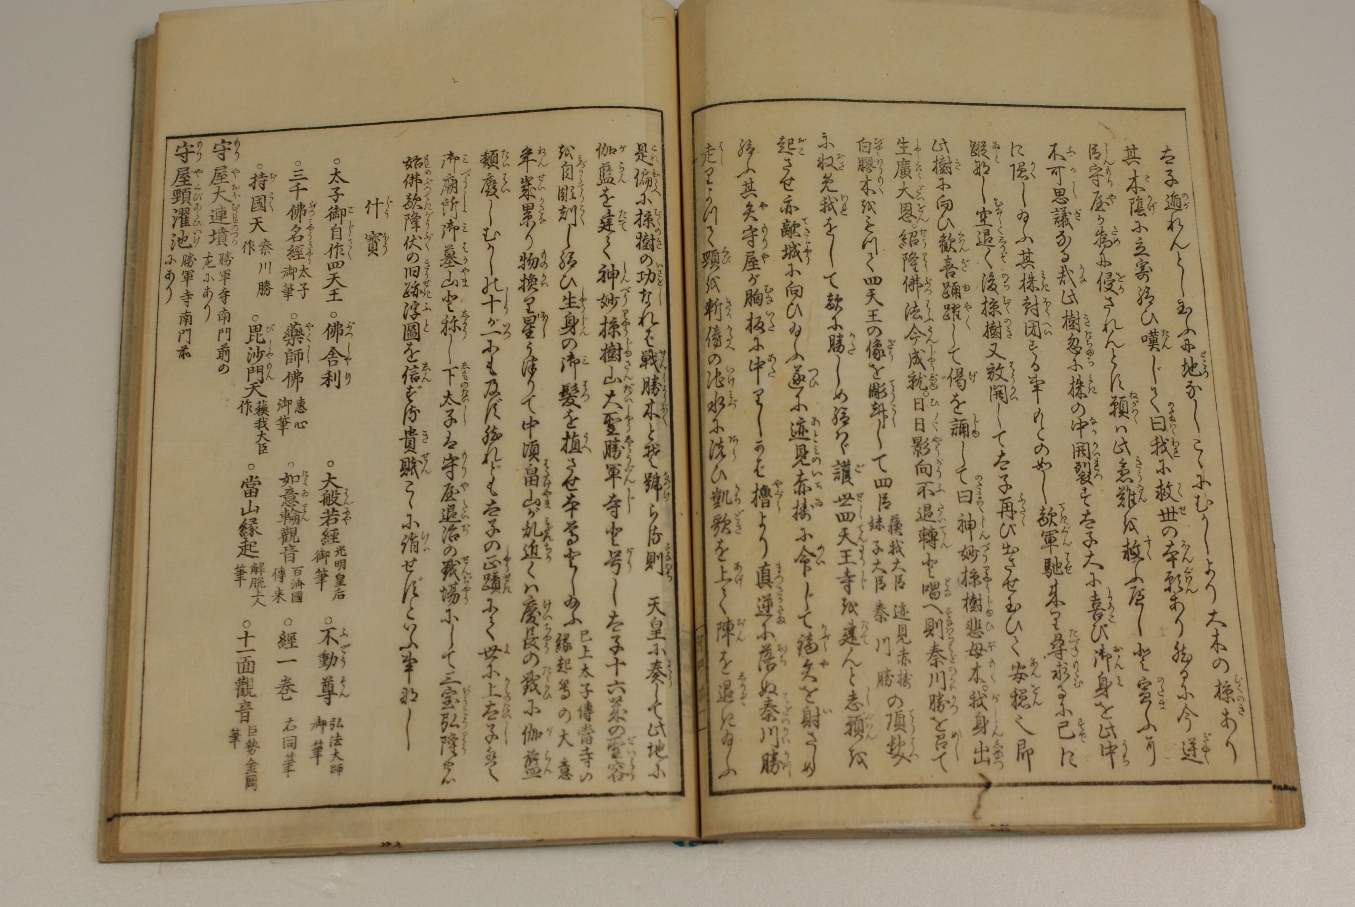 太子遁れんとし玉ふに地なしこゝにむかしより大木の椋あり
其木陰に立寄給ひ嘆じて曰我に救世の本願あり然るに今逆
臣守屋が為に侵されんとす願くは此危難を救ふ
不可思議なる哉此樹忽に株の中開裂す太子大に喜び御身を此中
に隠し給ふ其株封閉する事もとのめし敵軍馳来り尋求るに已に
蹤なし空退く後椋樹又放開して太子再び出させ玉ひて安穏
此樹に向ひ歓喜踊躍して偈を誦して曰神妙椋樹悲母木我身出
生廣大恩紹隆佛法今成就日日影向不退轉と唱へ則秦川勝を召て
白膠木をとつて四天王の像を彫刻して四臣 蘓我大臣 迹見赤檮 妹子大臣 秦川勝 の頂髪
に収め我をして敵に勝しめ給はゞ護世四天王寺を建んと志願を
起させ亦敵城に向ひ給ふ遂に迹見赤檮に令じて鏑矢を射さしめ
給ふ其矢守屋が胸板に中りしかば櫓より真逆に落ぬ秦川勝
走りよつて頸を斬傍の池水に洗ひ凱歌を上て陣を退き給ふ
是偏に椋樹の功なれば戦勝木と號らる則 天皇に奏して此地に
伽藍を建て神妙椋樹山大聖勝軍寺と号し太子十六才の霊容
を自彫刻し給ひ生身の御髪を植させ本尊としめふ 已上太子傳當寺の 縁起等の大意
年歳累り物換り星うつりて中頃畠山が乱近くは慶長の戦に伽藍
頽廢しむかしの十が一にも及ばず然れども太子の正蹟にて世に上太子
御廟所御墓山と称し下太子は守屋退治の戦場にして三宝弘隆
始佛敵降伏の旧跡浮圖を信ずる貴賤こゝに詣せずといふ事なし
什寳
○太子御自作四天王 ○佛舎利 ○大般若經 光明皇后御筆 ○不動尊 弘法大師御筆
○三千佛名經 太子御筆 ○藥師佛 恵心御筆 ○如意輪觀音 百済國傳来 ○經一巻 右同筆
○持國天 秦川勝作 ○毘沙門天 蘓我大臣作 ○當山縁起 解脱上人筆 ○十一面觀音 巨勢金岡筆
守屋大連墳 勝軍寺南門前の左にあり
守屋頸濯池 勝軍寺南門前にあり